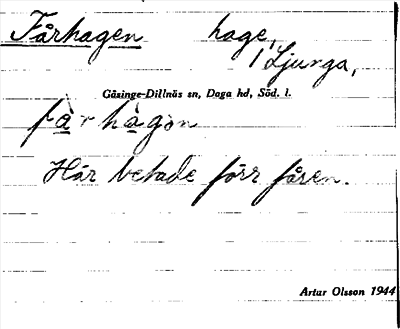 Fårhagen hage,
i Ljunga,
Gåsinge-Dillnäs sn, Daga hd, Söd. l.
fà̱r hà̱gɔn
Här betade förr fåren.
Artar Olsson 1944